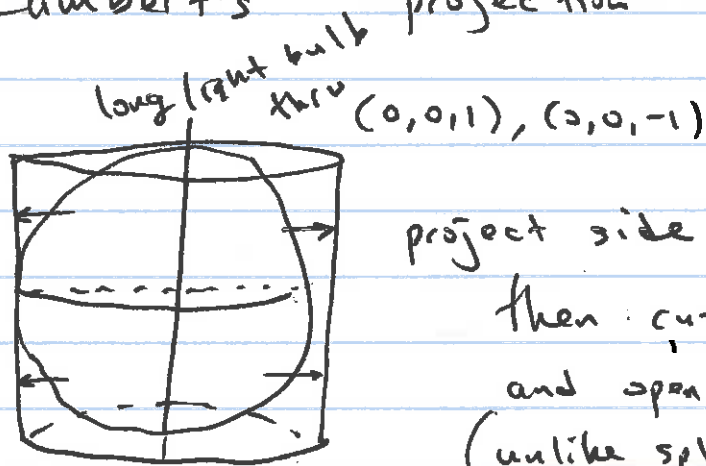 Lambert's projection
long light bulb
thru (0,0,1), (0,0,-1)
project side
then cut
and open
(unlike